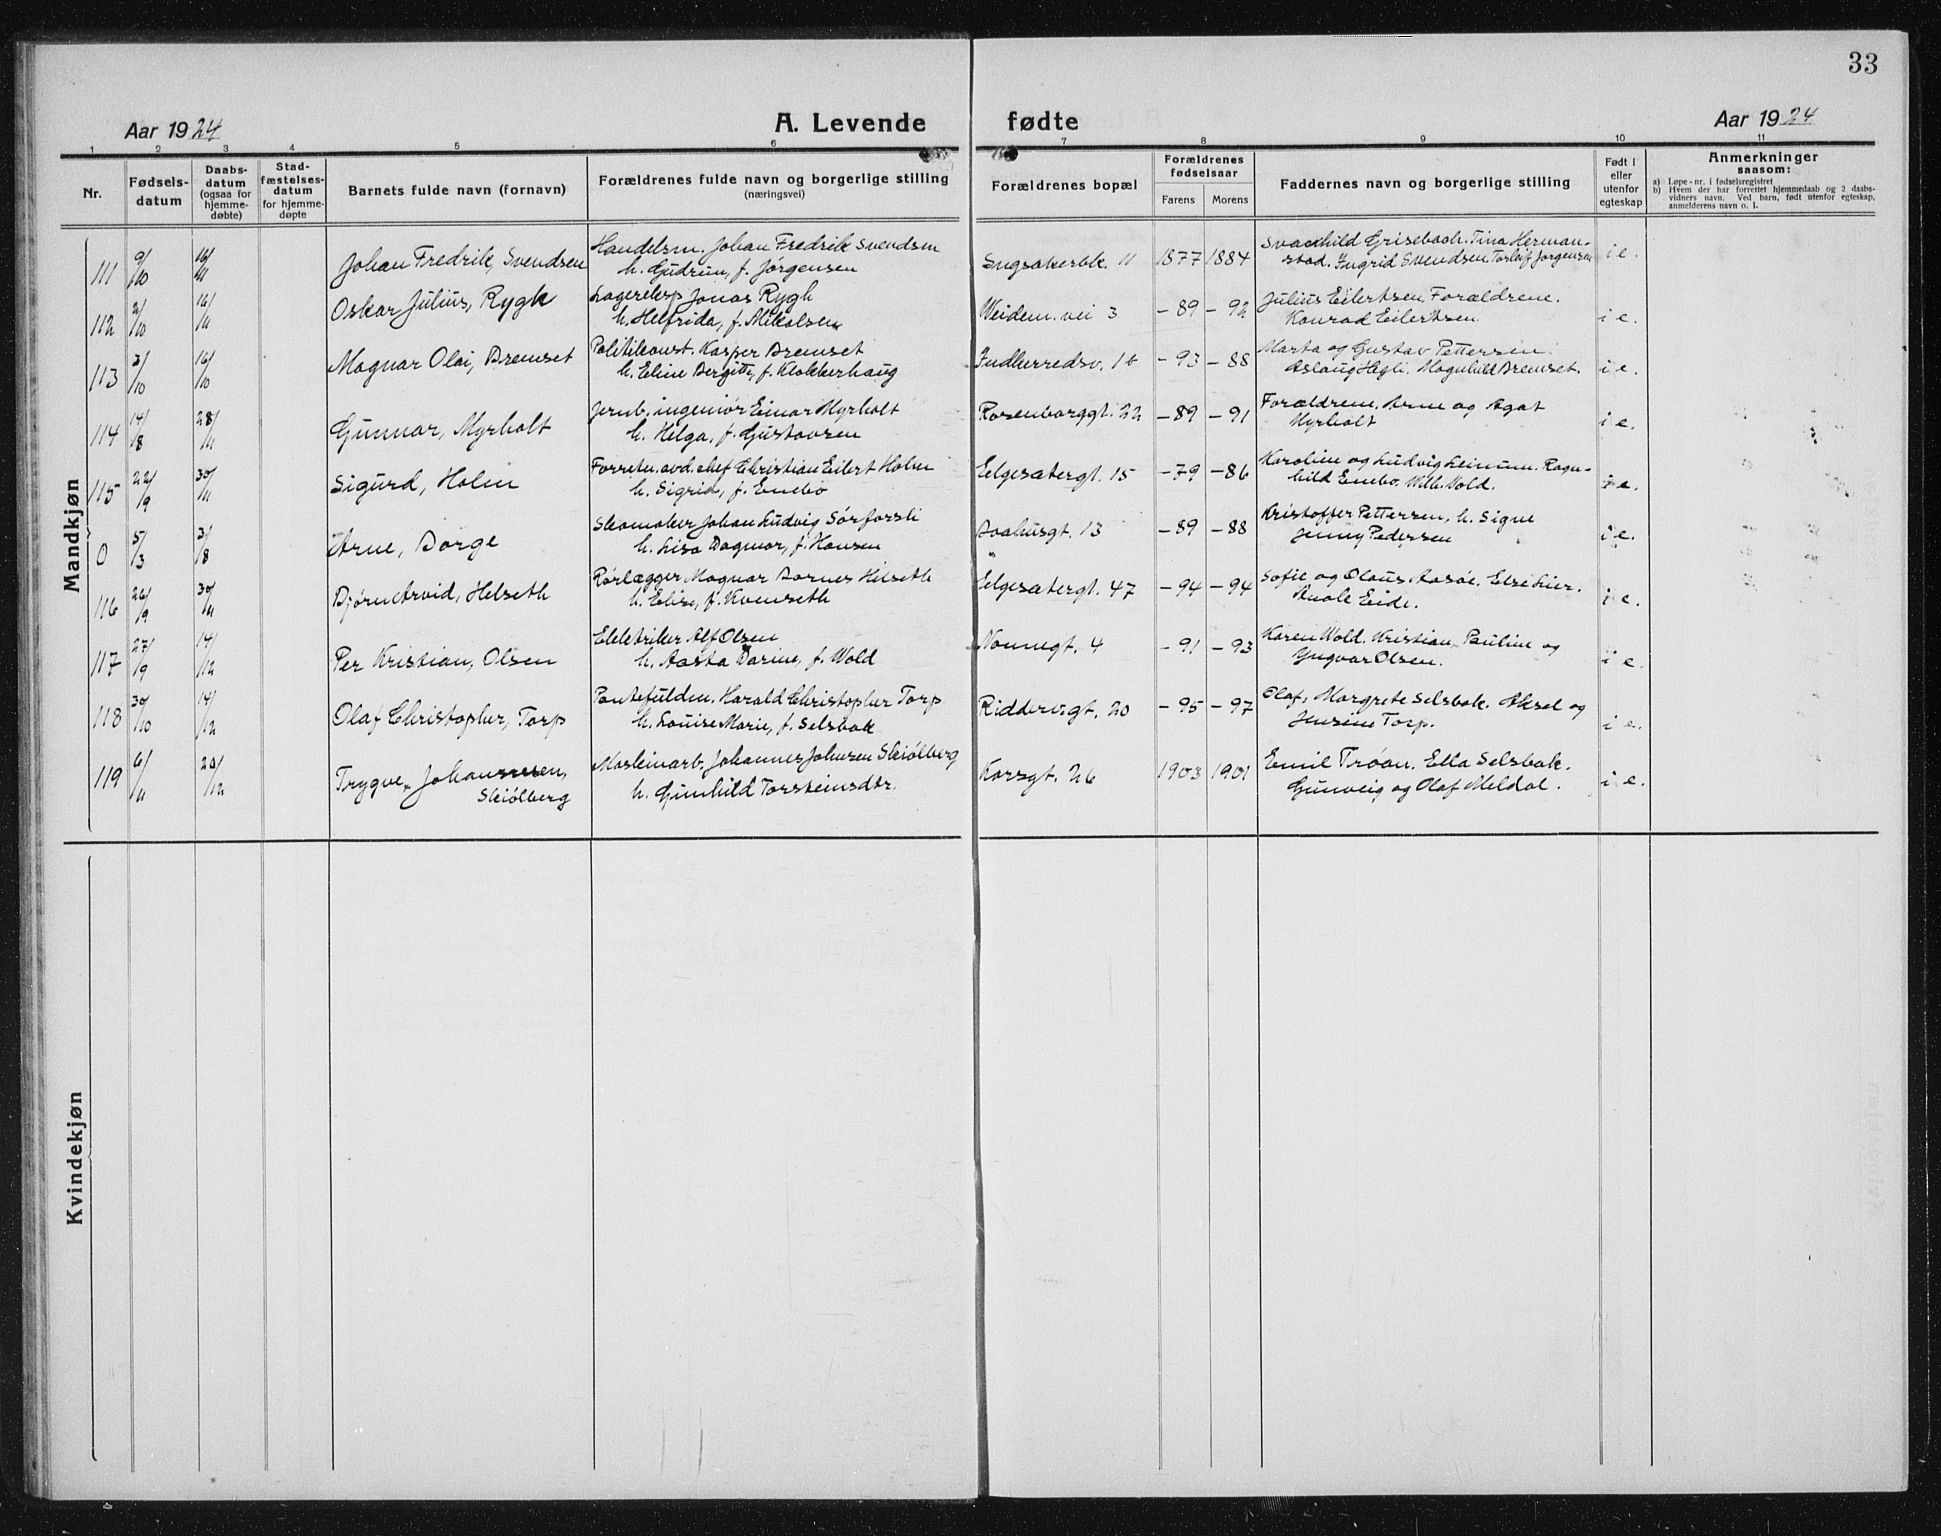 33
Aar 1924
A. Levende fødte
Aar 1924
1 2 3 4 5 6 7 8 9 10 11
Nr.
Fødsels-
datum
Daabs-
datum
(ogsaa for
hjemme-
døbte)
Stad-
fæstelses-
datum
for hjemme-
døpte
Barnets fulde navn (fornavn)
Forældrenes fulde navn og borgerlige stilling
(næringsvei)
Forældrenes bopæl
Forældrenes
fødselsaar
Farens Morens
Faddernes navn og borgerlige stilling
Født i
eller
utenfor
egteskap
Anmerkninger
saasom:
a) Løpe-nr. i fødselsregistret
b) Hvem der har forrettet hjemmedaab og 2 daabs-
vidners navn. Ved barn, født utenfor egteskap,
anmelderens navn o. l.
Mandkjøn
111 9/10 16/11 Johan Fredrik, Svendsen
Handelsm. Johan Fredrik Svendsen
h. Gudrun, f. Jørgensen
11 1877 1884
Grisebach. Tina Herman-
stad. Ingrid Svendsen. Torleif Jørgensen
i e.
112 2/10 16/11 Oskar Julius, Rygh
Jonas Rygh
h. Helfrida, f. Mikalsen
Weidem. vei 3 -89 -92
Julius Eilertsen. Forældrene.
Konrad Eilertsen.
i e.
113 3/10 16/10 Magnar Olai, Bremset
Politikonst. Kasper Bremset
h. Eline Bergitte, f. Klokkerhaug
Indherredsv. 1b -93 -88
Marta og Gustav Pettersen.
Aslaug Hegli. Magnhild Bremset.
i e.
114 14/8 28/11 Gunnar, Myrholt
Jernb. ingeniør Einar Myrholt
h. Helga, f. Gustavsen
Rosenborggt. 22 -89 -91
Forældrene. Arne og Agat
Myrholt
i e.
115 22/9 30/11 Sigurd, Holm
Forretn. avd. chef Christian Eilert Holm
h. Sigrid, f. Enebo
Eelgesætergt. 15 -79 -86
Karoline og Ludvig Leinum. Ragn-
hild Enebo. Wilh. Vold.
i e.
0 5/3 3/8 Arne, Børge
Skomaker Johan Ludvig Sørforsli
h. Lisa Dagmar, f. Hansen
Baahusgt. 13 -89 -88
Kristoffer Pettersen, h. Signe
Jenny Pedersen
i e.
116 26/9 30/11 Bjørn Arvid, Helseth
Rørlægger Magnar Barnes Helseth
h. Elise, f. Kvenseth
Eelgesætergt. 47 -94 -94
Sofie og Olaus Aasøe. Else Lier.
Eide.
i e.
117 27/9 14/12 Per Kristian, Olsen
Elektriker Alf Olsen
h. Aasta Darine, f. Wold
Nonnegt. 4 -91 -93
Karen Wold. Kristian, Pauline og
Yngvar Olsen.
i e.
118 30/10 14/12 Olaf Christopher, Torp
Harald Christopher Torp
h. Louise Marie, f. Selsbak
Riddervgt. 20 -95 -97
Olaf, Margrete Selsbak. Aksel og
Jensine Torp.
i e.
119 6/11 20/12 Trygve, Johannesen,
Skiølberg
Maskinarb. Johannes Johnsen Skiølberg
h. Gunhild Torsteinsdtr.
Korsgt. 26 1903 1901
Emil Trøan. Ella Selsbak.
Gunveig og Olaf Meldal.
i e.
Kvindekjøn